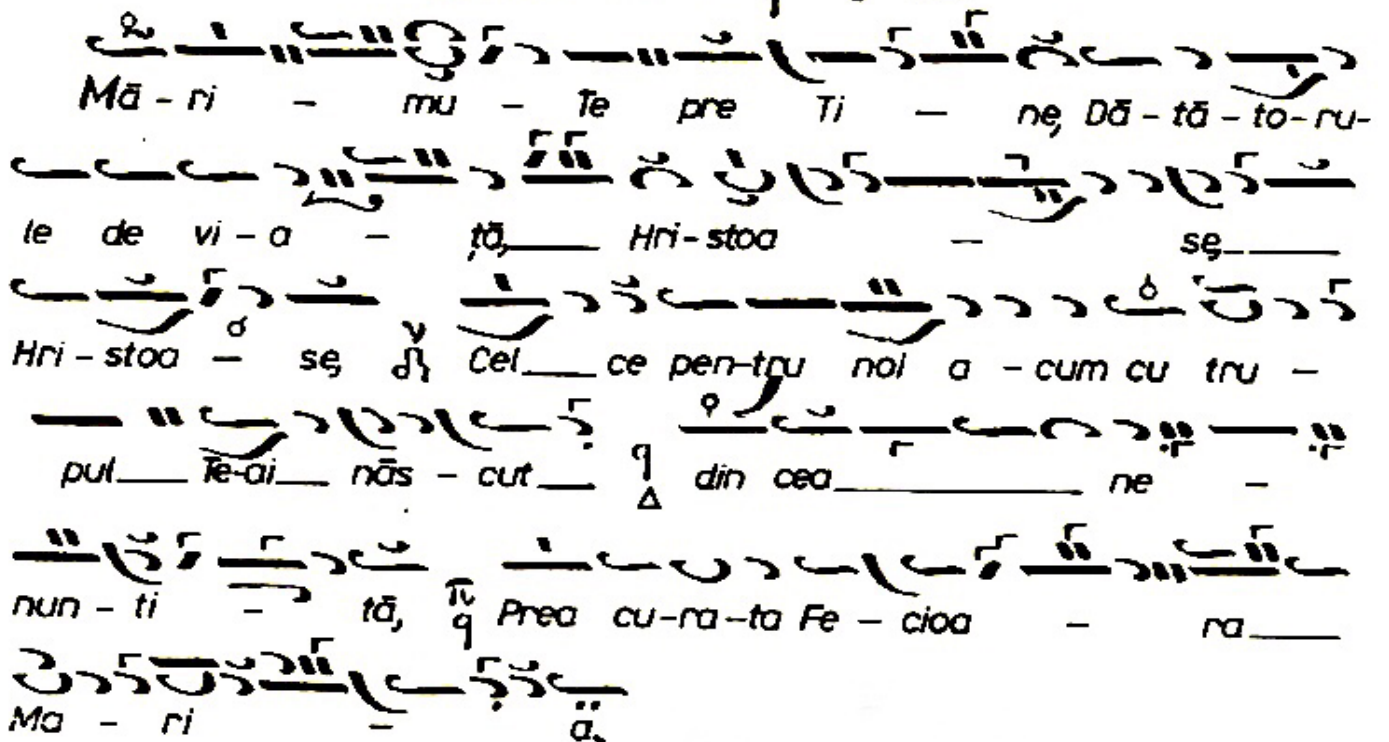 Mă - ri - mu - Te pre Ti - ne, Dă - tă - to - ru-
le de vi - a - ță, Hri - stoa - se,
Hri - stoa - se, Cel ce pen - tru noi a - cum cu tru -
pul Te-ai năs - cut din cea ne -
nun - ti - tă, Prea cu - ra - ta Fe - cioa - ra
Ma - ri - a,